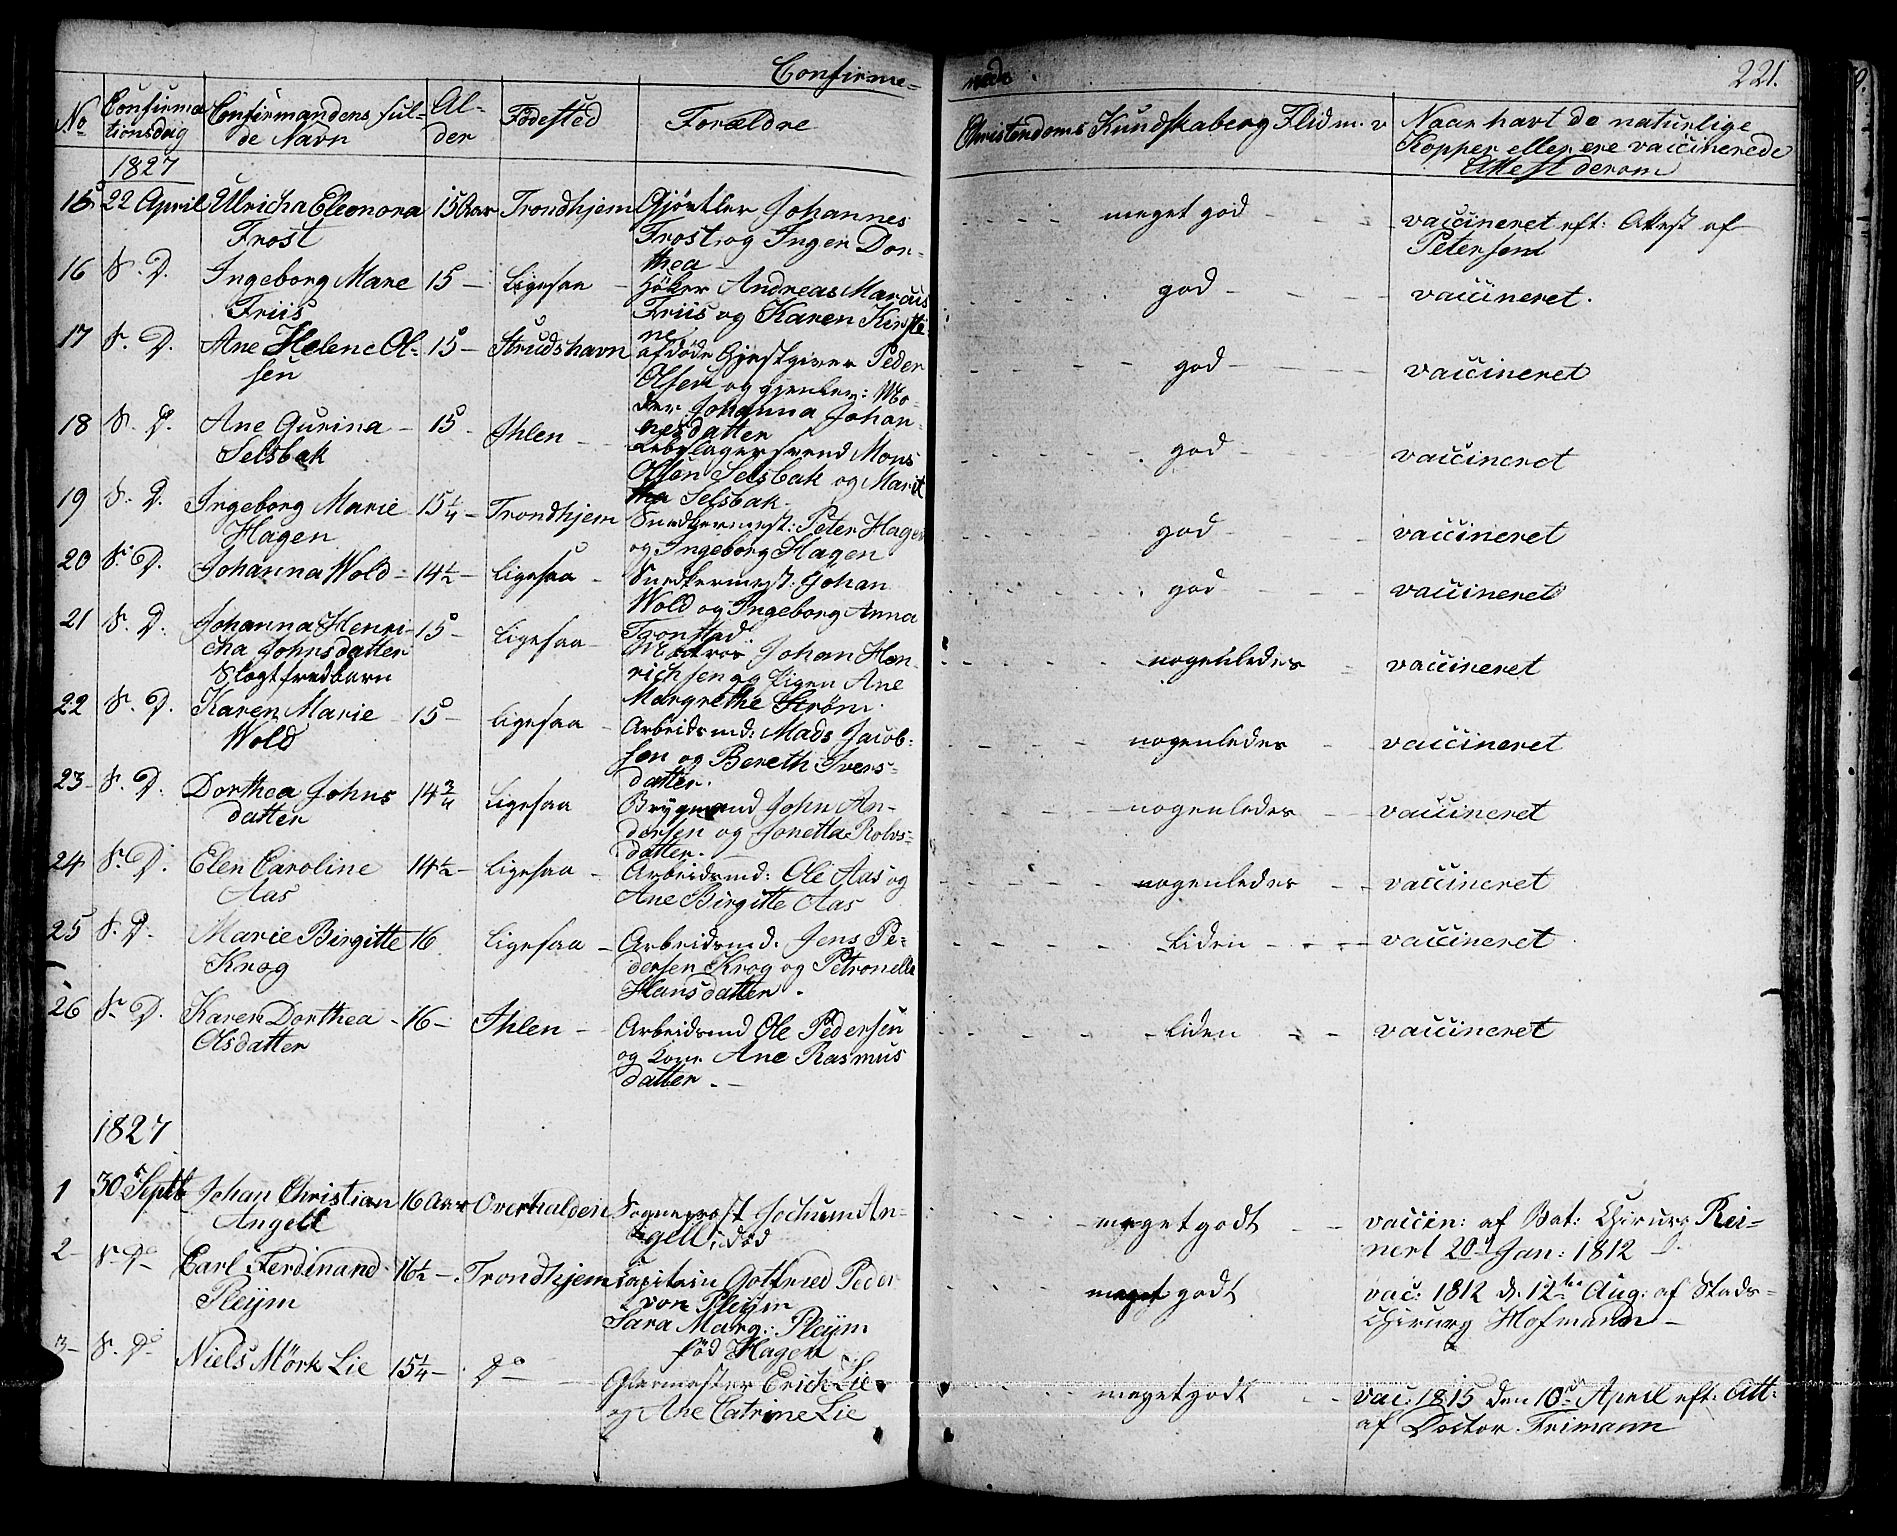 Confirme= rede. 221.
No Confirma tionsdag Confirmandens ful= de Navn Al= der Födested Forældre Christendoms Kundskaber og Flid m. v Naar havt de naturlige Kopper eller ere vaccinerede Attest derom
1827
15 22 April Ulricha Eleonora Frost 15 Aar Trondhjem Gjörtler Johannes Frost og Inger Dor= thea meget god vaccineret eft: Attest af Petersen
16 S. D. Ingeborg Mare Friis 15 – Ligesaa – Höker Andreas Marcus Friis og Karen Kirsti= ne god vaccineret.
17 S. D. Ane Helene Ol= sen 15 – Strudshavn afdöde Gjestgiver Peder Olsen og gjenlev: Mo= der Johanna Johan= nesdatter god vaccineret
18 S. D. Ane Gurina Selsbak 15 – Ihlen – Rebslagersvend Mons Olsen Selsbak og Marit Selsbak – god vaccineret
19 S. D. Ingeborg Marie Hagen 15 1/4 – Trondhjem Snedkermest: Peter Hagen og Ingeborg Hagen god vaccineret
20 S. D. Johanna Wold – 14 1/2 – Ligesaa – Snedkermest: Johan Wold og Ingeborg Anna Tronstad god vaccineret
21 S. D. Johanna Henri= cha Johnsdatter Slogtfredbarn 15 – Ligesaa – Matros Johan Hen= richsen og Pigen Ane Margrethe Ström. nogenledes vaccineret
22 S. D. Karen Marie Wold 15 – Ligesaa – Arbeidsmd: Mads Jacob= sen og Bereth Ivers= datter. nogenledes vaccineret
23 – S. D. Dorthea Johns datter 14 3/4 Ligesaa Brygmand John An= dersen og Jonetta Rolvs= datter. – nogenledes vaccineret
24 S. D. Elen Caroline Aas 14 1/2 – Ligesaa – Arbeidsmd: Ole Aas og Ane Birgitte Aas nogenledes vaccineret
25 S. D. Marie Birgitte Krog 16 Ligesaa – Arbeidsmd. Jens Pe= dersen Krog og Petronelle Hansdatter. Liden vaccineret
26 S. D. Karen Dorthea Olsdatter – 16 – Ihlen – Arbeidsmd Ole Pedersen og Kone Ane Rasmus datter. – Liden vaccineret
1827
1 30 Septb Johan Christian Angell 16 Aar Overhalden Sogneprest Jochum An= gell, död meget godt vaccin: af Bat: Chirurg Rei= nert 20de Jan: 1812 –
2 – S. Do – Carl Ferdinand Pleÿm 16 1/2 –. Trondhjem Capitain Gotfried Peder von Pleÿm Sara Marg: Pleÿm föd Hagen meget godt vac: 1812 d. 12te Aug: af Stads= Chirurg Hofmann –
3 – S. Do – Niels Mörk Lie 15 1/4 – Do – Glarmester Erick Lie og Ane Catrine Lie meget godt vac: 1815 den 10de April eft: Att: af Doctor Frimann